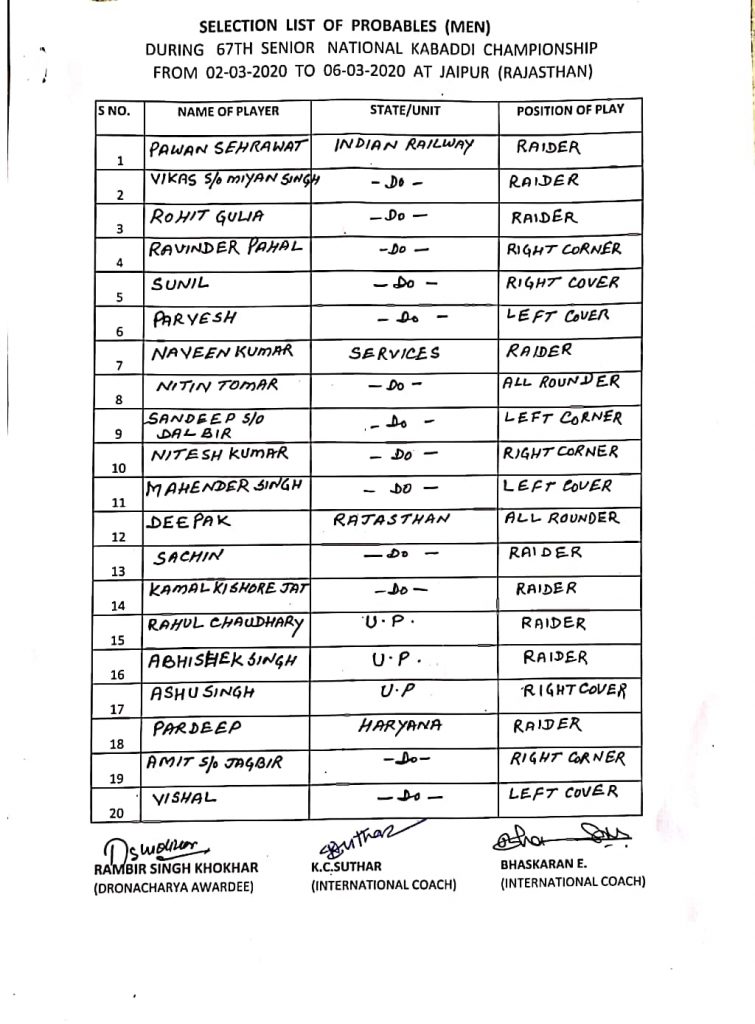 SELECTION LIST OF PROBABLES (MEN)
DURING 67TH SENIOR NATIONAL KABADDI CHAMPIONSHIP
FROM 02-03-2020 TO 06-03-2020 AT JAIPUR (RAJASTHAN)
S NO. NAME OF PLAYER STATE/UNIT POSITION OF PLAY
1 PAWAN SEHRAWAT INDIAN RAILWAY RAIDER
2 VIKAS S/o MIYAN SINGH - Do - RAIDER
3 ROHIT GULIA - Do - RAIDER
4 RAVINDER PAHAL - Do - RIGHT CORNER
5 SUNIL - Do - RIGHT COVER
6 PARVESH - Do - LEFT COVER
7 NAVEEN KUMAR SERVICES RAIDER
8 NITIN TOMAR - Do - ALL ROUNDER
9 SANDEEP S/o - Do - LEFT CORNER
DALBIR
10 NITESH KUMAR - Do - RIGHT CORNER
11 MAHENDER SINGH - DO - LEFT COVER
12 DEEPAK RAJASTHAN ALL ROUNDER
13 SACHIN - Do - RAIDER
14 KAMAL KISHORE JAT - Do - RAIDER
15 RAHUL CHAUDHARY U.P. RAIDER
16 ABHISHEK SINGH U.P. RAIDER
17 ASHU SINGH U.P RIGHT COVER
18 PARDEEP HARYANA RAIDER
19 AMIT S/o JAGBIR - Do - RIGHT CORNER
20 VISHAL - Do - LEFT COVER
Suthar
RAMBIR SINGH KHOKHAR K.C.SUTHAR BHASKARAN E.
(DRONACHARYA AWARDEE) (INTERNATIONAL COACH) (INTERNATIONAL COACH)